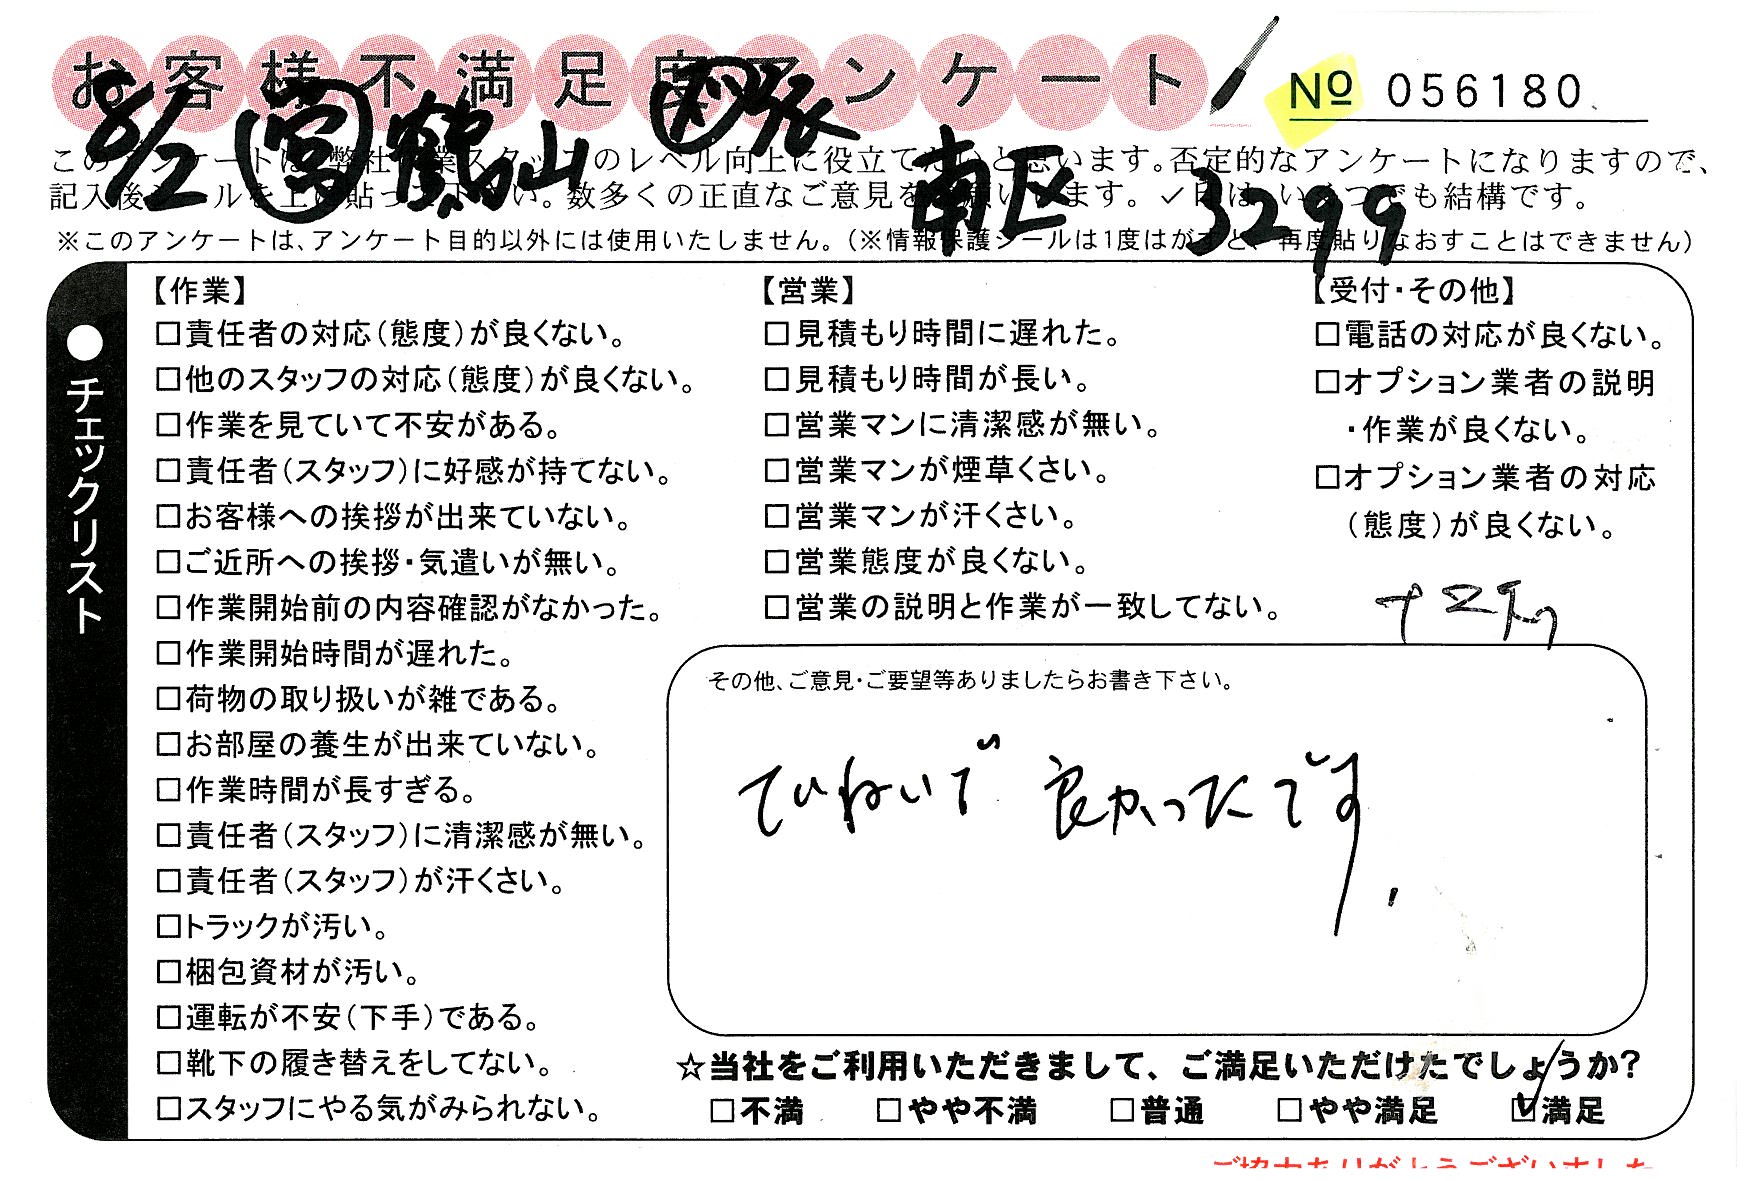 お客様不満足度アンケート
№ 056180
8/2 鶴山
南区 3299
このアンケートは、弊社作業スタッフのレベル向上に役立てたいと思います。否定的なアンケートになりますので、
記入後シールを上に貼って下さい。数多くの正直なご意見をお願いします。✓印は、いくつでも結構です。
※このアンケートは、アンケート目的以外には使用いたしません。(※情報保護シールは1度はがすと、再度貼りなおすことはできません)
●チェックリスト
【作業】
□責任者の対応(態度)が良くない。
□他のスタッフの対応(態度)が良くない。
□作業を見ていて不安がある。
□責任者(スタッフ)に好感が持てない。
□お客様への挨拶が出来ていない。
□ご近所への挨拶・気遣いが無い。
□作業開始前の内容確認がなかった。
□作業開始時間が遅れた。
□荷物の取り扱いが雑である。
□お部屋の養生が出来ていない。
□作業時間が長すぎる。
□責任者(スタッフ)に清潔感が無い。
□責任者(スタッフ)が汗くさい。
□トラックが汚い。
□梱包資材が汚い。
□運転が不安(下手)である。
□靴下の履き替えをしてない。
□スタッフにやる気がみられない。
【営業】
□見積もり時間に遅れた。
□見積もり時間が長い。
□営業マンに清潔感が無い。
□営業マンが煙草くさい。
□営業マンが汗くさい。
□営業態度が良くない。
□営業の説明と作業が一致してない。
【受付・その他】
□電話の対応が良くない。
□オプション業者の説明
・作業が良くない。
□オプション業者の対応
(態度)が良くない。
その他、ご意見・ご要望等ありましたらお書き下さい。
ていねいで 良かったです。
☆当社をご利用いただきまして、ご満足いただけたでしょうか?
□不満 □やや不満 □普通 □やや満足 ☑満足
ご協力ありがとうございました